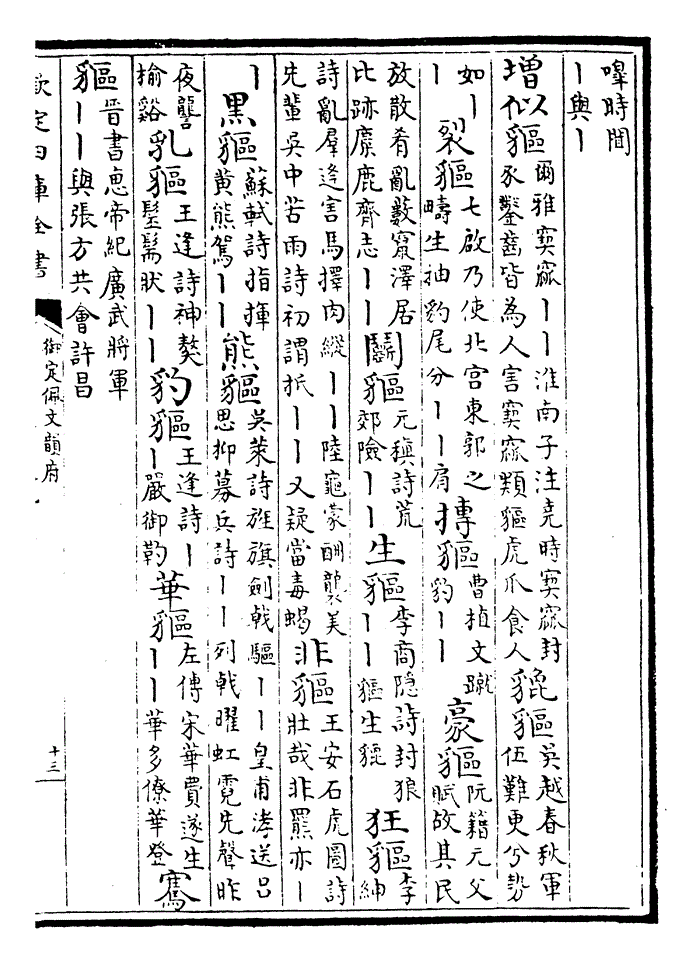 嘷時間
丨與丨
增似貙爾雅䝟㺄丨丨淮南子注堯時䝟㺄封豕鑿齒皆為人害䝟㺄類貙虎爪食人貔貙吳越春秋軍伍難更兮勢
如丨丨裂貙七啟乃使北宫東郭之疇生抽豹尾分丨丨肩摶貙曹植文蹴豹丨丨豪貙阮籍元父賦故其民
放散肴亂藪竄澤居比跡麋鹿齊志丨丨鬭貙元稹詩荒郊險丨丨生貙李商隱詩封狼丨丨貙生貔狂貙李紳
詩亂羣逢害馬擇肉縱丨丨陸龜蒙酬襲美先輩吳中苦雨詩初謂抵丨丨又疑當毒蝎非貙王安石虎圖詩壯哉非羆亦丨
丨黑貙蘇軾詩指揮黄熊駕丨丨熊貙吳萊詩旌旗劍戟驅丨丨皇甫涍送吕思抑募兵詩丨丨列戟曜虹霓先聲昨
夜讋揄谿乳貙王逢詩神獒髬髵狀丨丨豹貙王逢詩丨丨嚴御勒華貙左傳宋華費遂生丨丨華多僚華登騫
貙晉書惠帝紀廣武將軍丨丨與張方共會許昌
欽定四庫全書
御定佩文韻府
十三